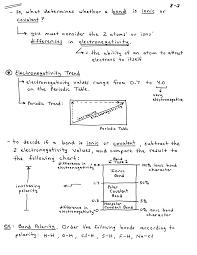 8-3
- So, what determines whether a bond is ionic or
covalent?
↳ you must consider the 2 atoms' ions'
differences in electronegativity.
↳ = the ability of an atom to attract
electrons to itself
Electronegativity Trend
↳ electronegativity values range from 0.7 to 4.0
on the Periodic Table.
very
electronegative
↳ Periodic Trend:
Periodic Table
- to decide if a bond is ionic or covalent, subtract the
2 electronegativity values, and compare the result to
the following chart:
difference in
electronegativity
Bond
Type?
100% ionic bond
character
Ionic
Bond
increasing
polarity
1.7
50%
Polar
Covalent
Bond
Nonpolar
Covalent Bond
difference in
electronegativity
0% ionic bond
character
EX: Bond Polarity. Order the following bonds according to
polarity: H-H, O-H, Cl-H, S-H, F-H, Na-Cl